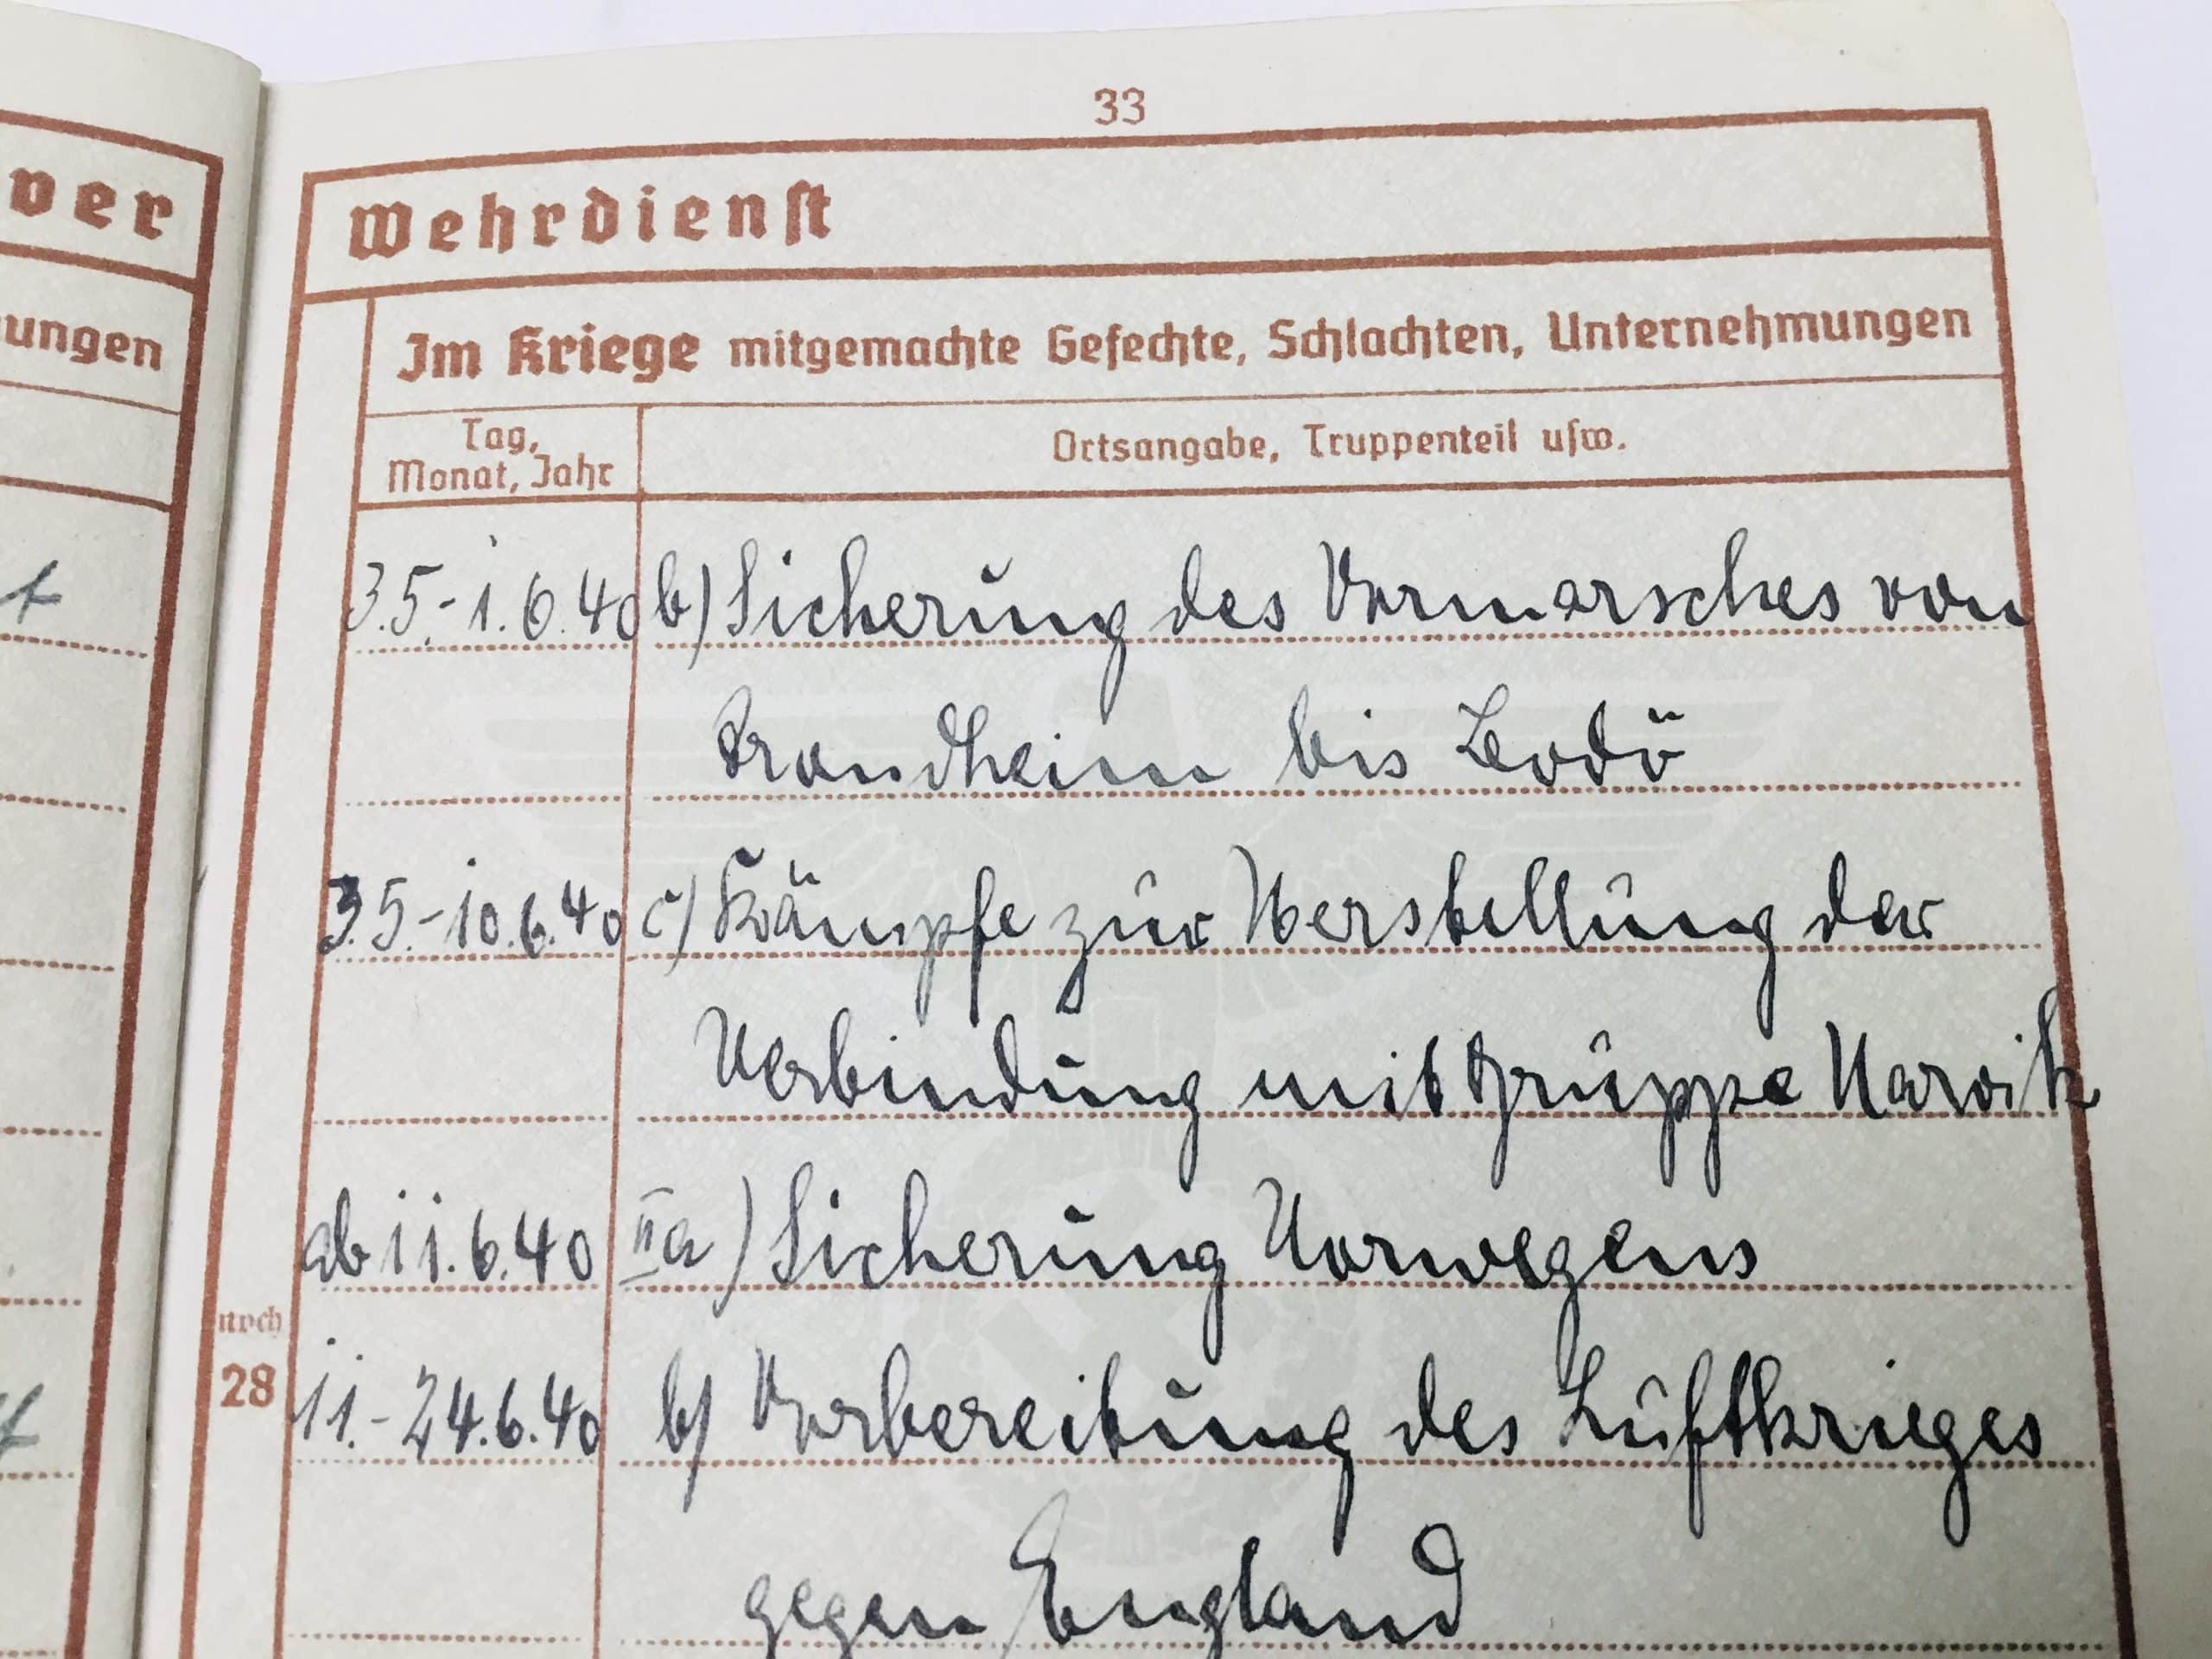 33
ver
Wehrdienst
ungen
Im Kriege mitgemachte Gefechte, Schlachten, Unternehmungen
Tag,
Monat, Jahr
Ortsangabe, Truppenteil usw.
3.5.-1.6.40 b) Sicherung des Vormarsches von
Drondheim bis Bodö
3.5.-10.6.40 c) Kämpfe zur Herstellung der
Verbindung mit Gruppe Narvik
ab 11.6.40 IIa) Sicherung Norwegens
noch
28
11.-24.6.40 b) Vorbereitung des Luftkrieges
gegen England